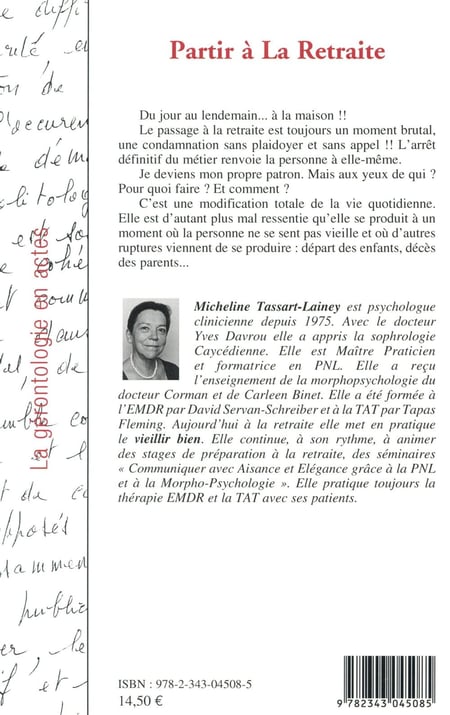 Partir à La Retraite
Du jour au lendemain... à la maison !!
Le passage à la retraite est toujours un moment brutal,
une condamnation sans plaidoyer et sans appel !! L'arrêt
définitif du métier renvoie la personne à elle-même.
Je deviens mon propre patron. Mais aux yeux de qui ?
Pour quoi faire ? Et comment ?
C'est une modification totale de la vie quotidienne.
Elle est d'autant plus mal ressentie qu'elle se produit à un
moment où la personne ne se sent pas vieille et où d'autres
ruptures viennent de se produire : départ des enfants, décès
des parents...
Micheline Tassart-Lainey est psychologue
clinicienne depuis 1975. Avec le docteur
Yves Davrou elle a appris la sophrologie
Caycédienne. Elle est Maître Praticien
et formatrice en PNL. Elle a reçu
l'enseignement de la morphopsychologie du
docteur Corman et de Carleen Binet. Elle a été formée à
l'EMDR par David Servan-Schreiber et à la TAT par Tapas
Fleming. Aujourd'hui à la retraite elle met en pratique
le vieillir bien. Elle continue, à son rythme, à animer
des stages de préparation à la retraite, des séminaires
« Communiquer avec Aisance et Elégance grâce à la PNL
et à la Morpho-Psychologie ». Elle pratique toujours la
thérapie EMDR et la TAT avec ses patients.
La gérontologie en actes
ISBN : 978-2-343-04508-5
14,50 €
9 782343 045085